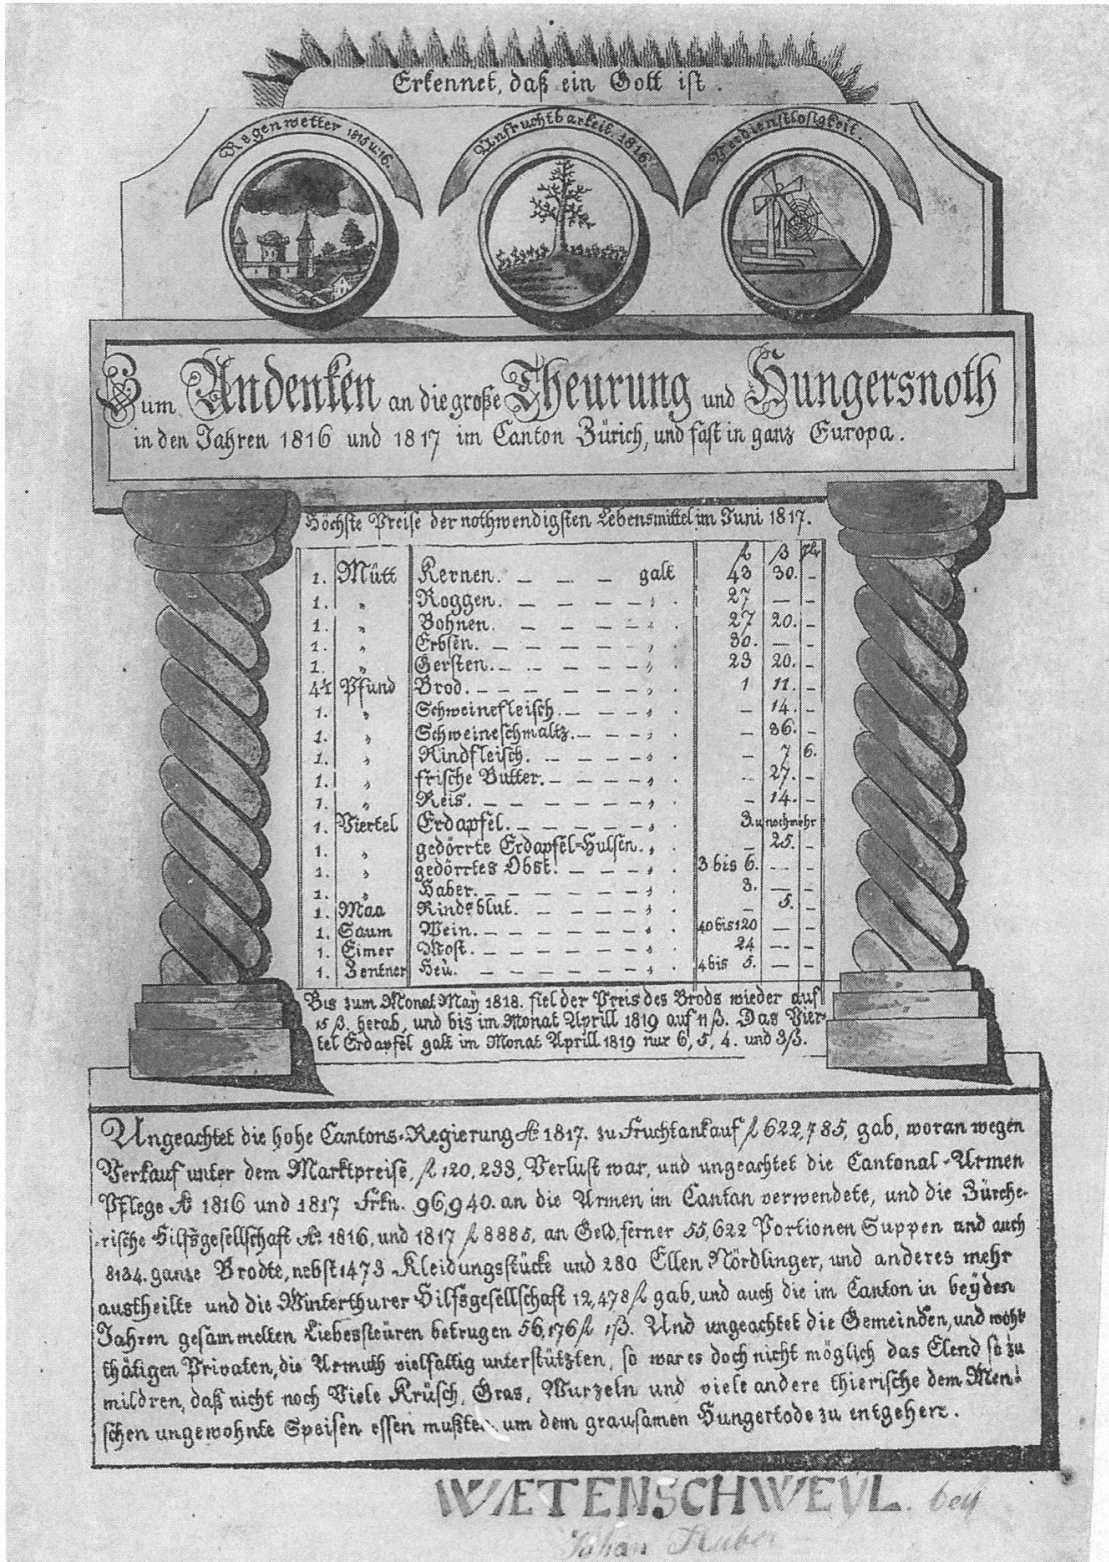 Erkennet, daß ein Gott ist.
Regenwetter 1815 u. 16.
Unfruchtbarkeit. 1816.
Verdienstlosigkeit.
Zum Andenken an die große Theurung und Hungersnoth
in den Jahren 1816 und 1817 im Canton Zürich, und fast in ganz Europa.
Höchste Preise der nothwendigsten Lebensmittel im Juni 1817.
ƒ ß
1. Mütt Kernen. — — — galt 43 30. —
1. " Roggen. — — — — " . 27 — —
1. " Bohnen. — — — — " . 27 20. —
1. " Erbsen. — — — — " . 30. — —
1. " Gersten. — — — — " . 23 20. —
4½ Pfund Brod. — — — — " . 1 11. —
1. " Schweinefleisch. — — — " . — 14. —
1. " Schweineschmaltz. — — — " . — 36. —
1. " Rindfleisch. — — — — " . — 7 6.
1. " frische Butter. — — — — " . — 27. —
1. " Reis. — — — — " . — 14. —
1. Viertel Erdapfel. — — — — " . 3. u noch mehr
1. " gedörrte Erdapfel=Hulsen. " . — 25. —
1. " gedörrtes Obst. — — — " . 3 bis 6. — —
1. " Haber. — — — — " . 3. — —
1. Maa Rindsblut. — — — — " . — 5. —
1. Saum Wein. — — — — " . 40 bis 120 — —
1. Eimer Most. — — — — " . 24 — —
1. Zentner Heü. — — — — " . 4 bis 5. — —
Bis zum Monat Maÿ 1818. fiel der Preis des Brods wieder auf
15 ß. herab, und bis im Monat Aprill 1819 auf 11 ß. Das Vier=
tel Erdapfel galt im Monat Aprill 1819 nur 6, 5, 4. und 3 ß.
Ungeachtet die hohe Cantons=Regierung Aº 1817. zu Fruchtankauf ƒ 622,785, gab, woran wegen
Verkauf unter dem Marktpreise, ƒ 120,233, Verlust war, und ungeachtet die Cantonal=Armen
Pflege Aº 1816 und 1817 Frkn. 96,940. an die Armen im Cantan verwendete, und die Zürche=
=rische Hilfsgesellschaft Aº 1816, und 1817 ƒ 8885, an Geld, ferner 55,622 Portionen Suppen and auch
8134. ganze Brodte, nebst 1473 Kleidungsstücke und 280 Ellen Nördlinger, und anderes mehr
austheilte und die Winterthurer Hilfsgesellschaft 12,478 ƒ gab, und auch die im Canton in beyden
Jahren gesammelten Liebessteüren betrugen 56,176 ƒ 1 ß. Und ungeachtet die Gemeinden, und wohl=
thätigen Privaten, die Armuth vielfältig unterstützten, so war es doch nicht möglich das Elend so zu
mildren, daß nicht noch Viele Krüsch, Gras, Wurzeln und viele andere thierische dem Men=
schen ungewohnte Speisen essen mußten um dem grausamen Hungertode zu entgehen.
WÆTENSCHWEYL. beÿ
Johan Huber